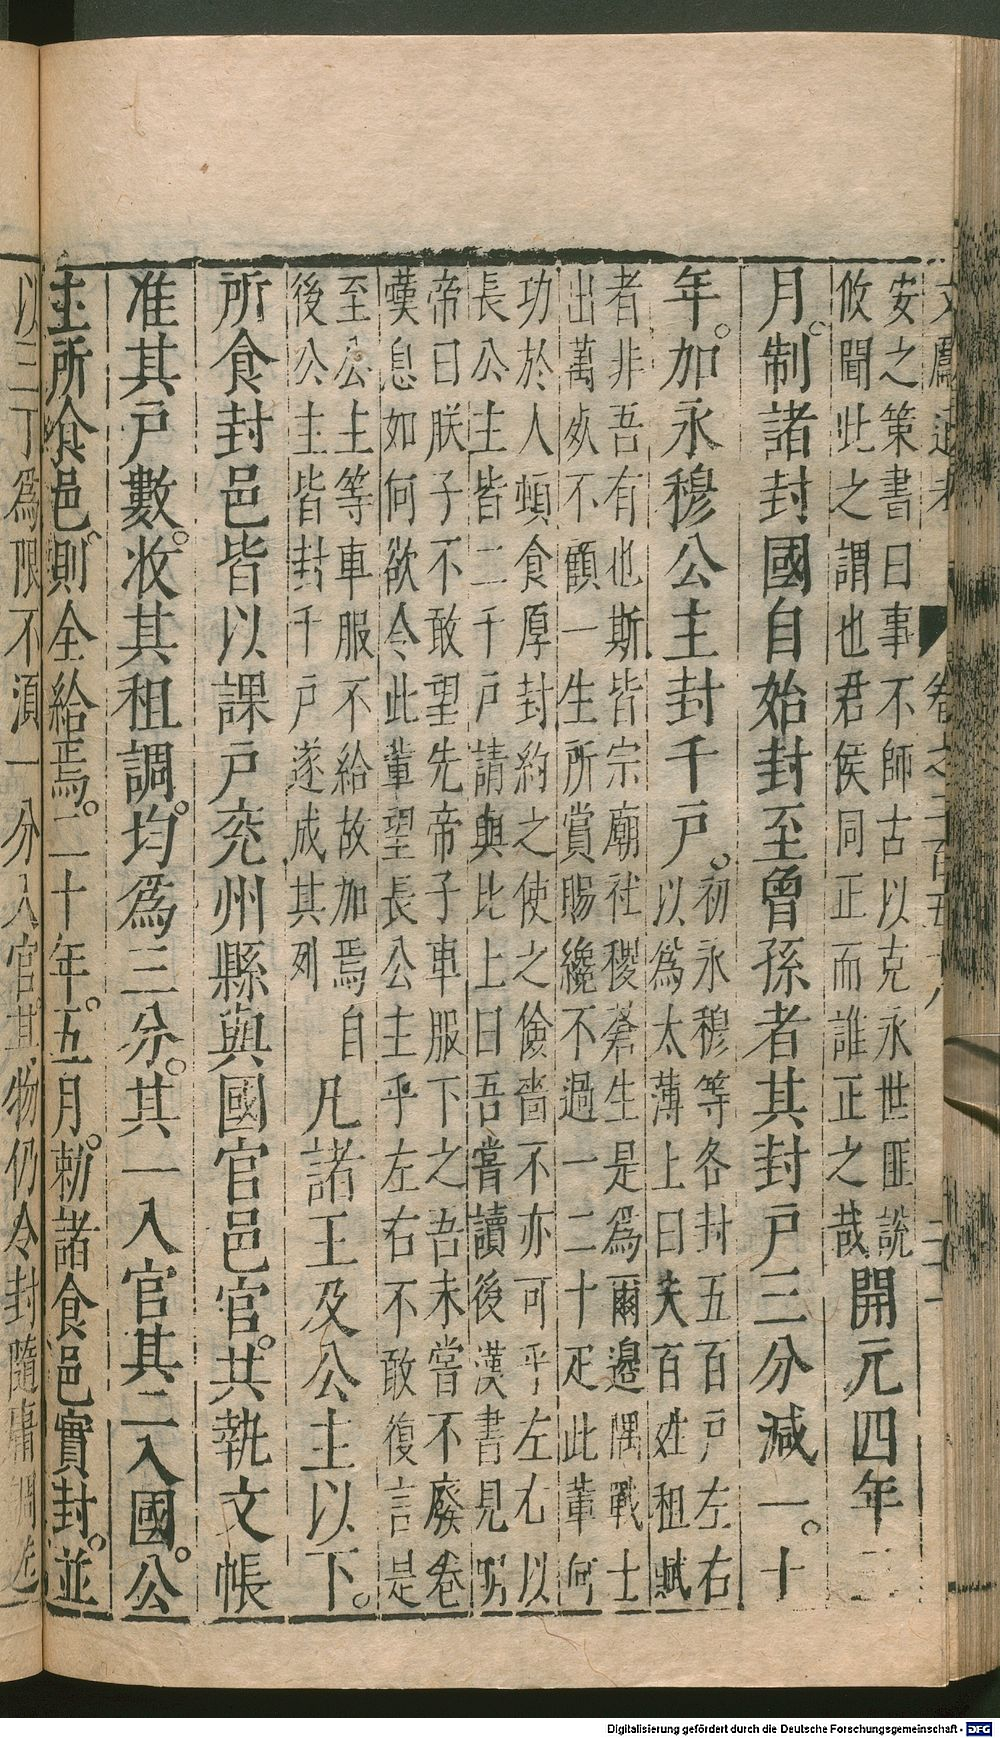 安之策書曰事不師古以克永世匪說
攸聞此之謂也君侯同正而誰正之哉
開元四年三
月制諸封國自始封至曾孫者其封戶三分減一。十
年。加永穆公主封千戶。
初永穆等各封五百戶左右
以為太薄上曰夫百姓租賦
者非吾有也斯皆宗廟社稷蒼生是為爾邊隅戰士
出萬死不顧一生所賞賜纔不過一二十疋此輩何
功於人頓食厚封約之使之儉嗇不亦可乎左右以
長公主皆二千戶請與比上曰吾嘗讀後漢書見明
帝曰朕子不敢望先帝子車服下之吾未嘗不廢卷
嘆息如何欲令此輩望長公主乎左右不敢復言是
至公主等車服不給故加焉自
後公主皆封千戶遂成其列
凡諸王及公主以下。
所食封邑皆以課戶充州縣與國官邑官。共執文帳
准其戶數。收其租調。均為三分。其一入官其二入國。公
主所食邑。則全給焉。二十年。五月。勅諸食邑實封。並
以三丁為限不須一分入官其物仍令封隨庸調送
文獻通考 卷之二百
Digitalisierung gefördert durch die Deutsche Forschungsgemeinschaft - DFG